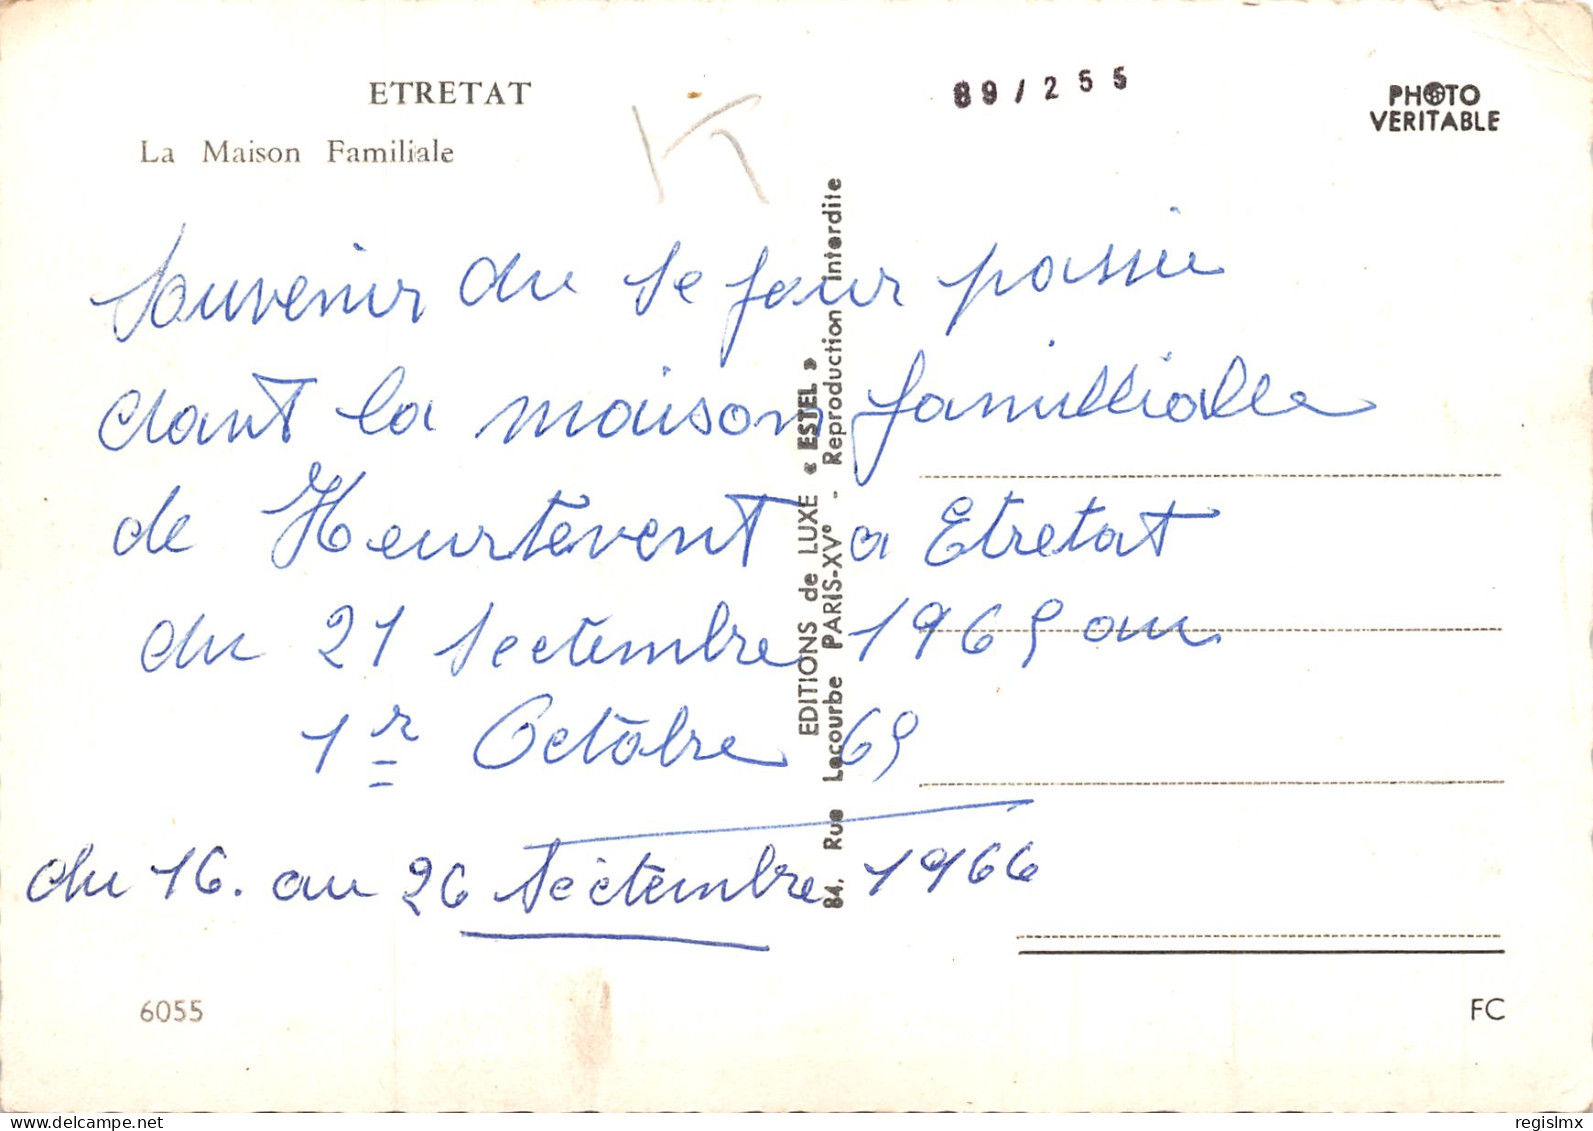 ETRETAT
La Maison Familiale
89/255
PHOTO
VERITABLE
Souvenir du se jour passée
dant la maison familliale
de Heurtevent a Etretat
du 21 Sectembre 1965 au
1r Octobre 65
du 16. au 26 Sectembre 1966
EDITIONS de LUXE « ESTEL »
84, Rue Lecourbe PARIS-XVe - Reproduction interdite
6055
FC
regislmx